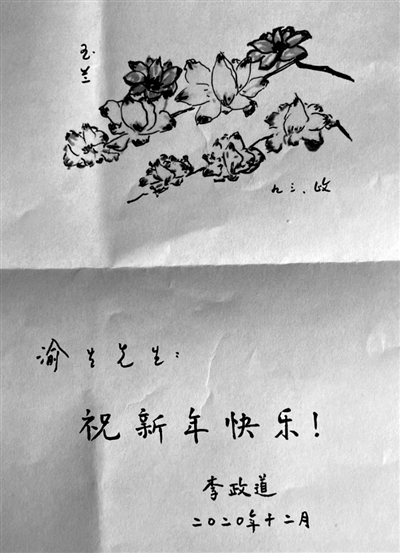 玉兰
九三、政
渝生先生：
祝新年快乐！
李政道
二〇二〇年十二月